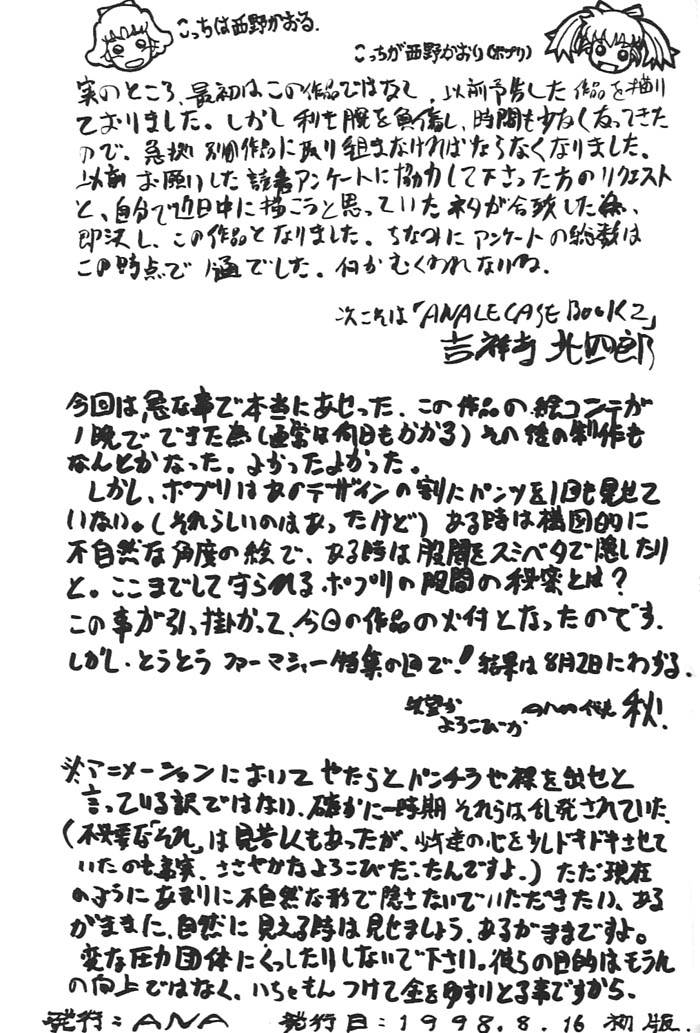 こっちは西野かおる.
こっちが西野かおり(ポプリ)
実のところ、最初はこの作品ではなく、以前予告した作品を描い
ておりました。しかし利き腕を負傷し、時間も少なくなってきた
ので、急拠 別の作品に取り組まなければならなくなりました。
以前お願いした読者アンケートに協力して下さった方のリクエスト
と、自分で近日中に描こうと思っていたネタが合致した為、
即決し、この作品となりました。ちなみにアンケートの総数は
この時点で1通でした。何かむくわれないね。
次こそは「ANALE CASE BOOK 2」
吉祥寺 北四郎
今回は急な事で本当にあせった、この作品の絵コンテが
1晩でできた為(通常は何日もかかる)その後の制作も
なんとかなった。よかったよかった。
しかし、ポプリはあのデザインの割にパンツを1回も見せて
いない。(それらしいのはあったけど)ある時は構図的に
不自然な角度の絵で、ある時は股間をスミベタで隠したり
と。ここまでして守られるポプリの股間の秘密とは?
この事が引っ掛かって、今回の作品の火付となったのです.
しかし、とうとうファーマシャー特集の回で!結果は8月2日にわかる.
よろこびーか
秋!
※アニメーションにおいてやたらとパンチラや裸を出せと
言っている訳ではない、確かに一時期それらは乱発されていた.
(不必要な"それ"は見苦しくもあったが、少年達の心を少しドキドキさせて
いたのも事実、ささやかなよろこびだったんですよ.)ただ現在
のようにあまりに不自然な形で隠さないでいただきたい、ある
がままに、自然に見える時は見せましょう、あるがままですよ。
変な圧力団体にくっしたりしないで下さい。彼らの目的はもうん
の向上ではなく、いちゃもんつけて金をゆすりとる事ですから.
発行:ANA 発行日:1998.8.16 初版.